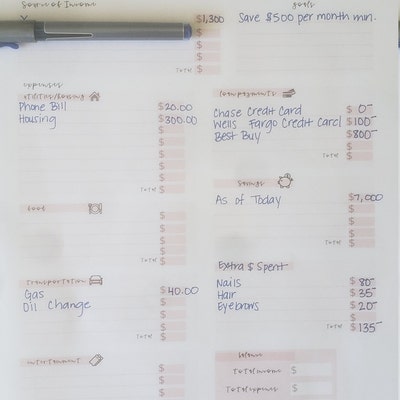 Source of Income
$1,300
$
$
$
Total $
goals
Save $500 per month min.
expenses
utilities/housing
Phone Bill $20.00
Housing $300.00
$
$
$
$
Total $
food
$
$
$
Total $
transportation
Gas $40.00
Oil Change $
$
Total $
entertainment
$
$
$
Chase Credit Card $ 0-
Wells Fargo Credit Card $100-
Best Buy $800-
$
Total $
Savings
As of Today $7,000
$
$
Total $
Extra $ Spent
Nails $ 80-
Hair $ 35-
Eyebrows $ 20-
$
Total $ 135-
balance
Total income $
Total expenses $